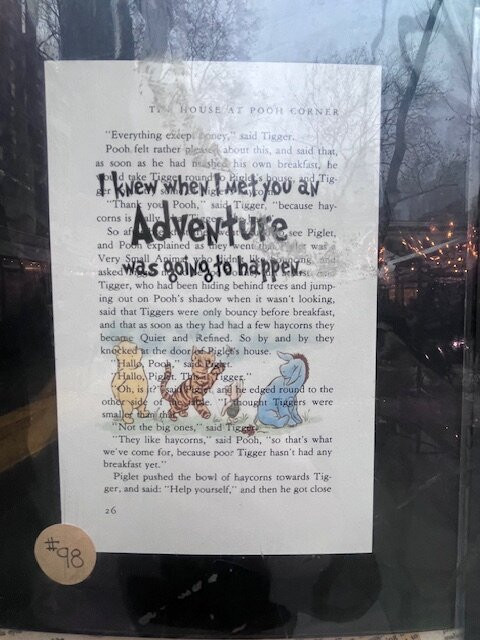 THE HOUSE AT POOH CORNER
"Everything except honey," said Tigger.
Pooh felt rather pleased about this, and said that,
as soon as he had finished his own breakfast, he
would take Tigger round to Piglet's house, and Tig-
I knew when I met you an
"Thank you, Pooh," said Tigger, "because hay-
corns is
Adventure
So see Piglet,
and Pooh explained as they went that Piglet was a
Very Small Animal who didn't like bouncing, and
asked
was going to happen.
Tigger, who had been hiding behind trees and jump-
ing out on Pooh's shadow when it wasn't looking,
said that Tiggers were only bouncy before breakfast,
and that as soon as they had had a few haycorns they
became Quiet and Refined. So by and by they
knocked at the door of Piglet's house.
"Hallo, Pooh," said Piglet.
"Hallo, Piglet. This is Tigger."
"Oh, is it?" said Piglet, and he edged round to the
other side of the table. "I thought Tiggers were
smaller than that."
"Not the big ones," said Tigger.
"They like haycorns," said Pooh, "so that's what
we've come for, because poor Tigger hasn't had any
breakfast yet."
Piglet pushed the bowl of haycorns towards Tig-
ger, and said: "Help yourself," and then he got close
26
#98